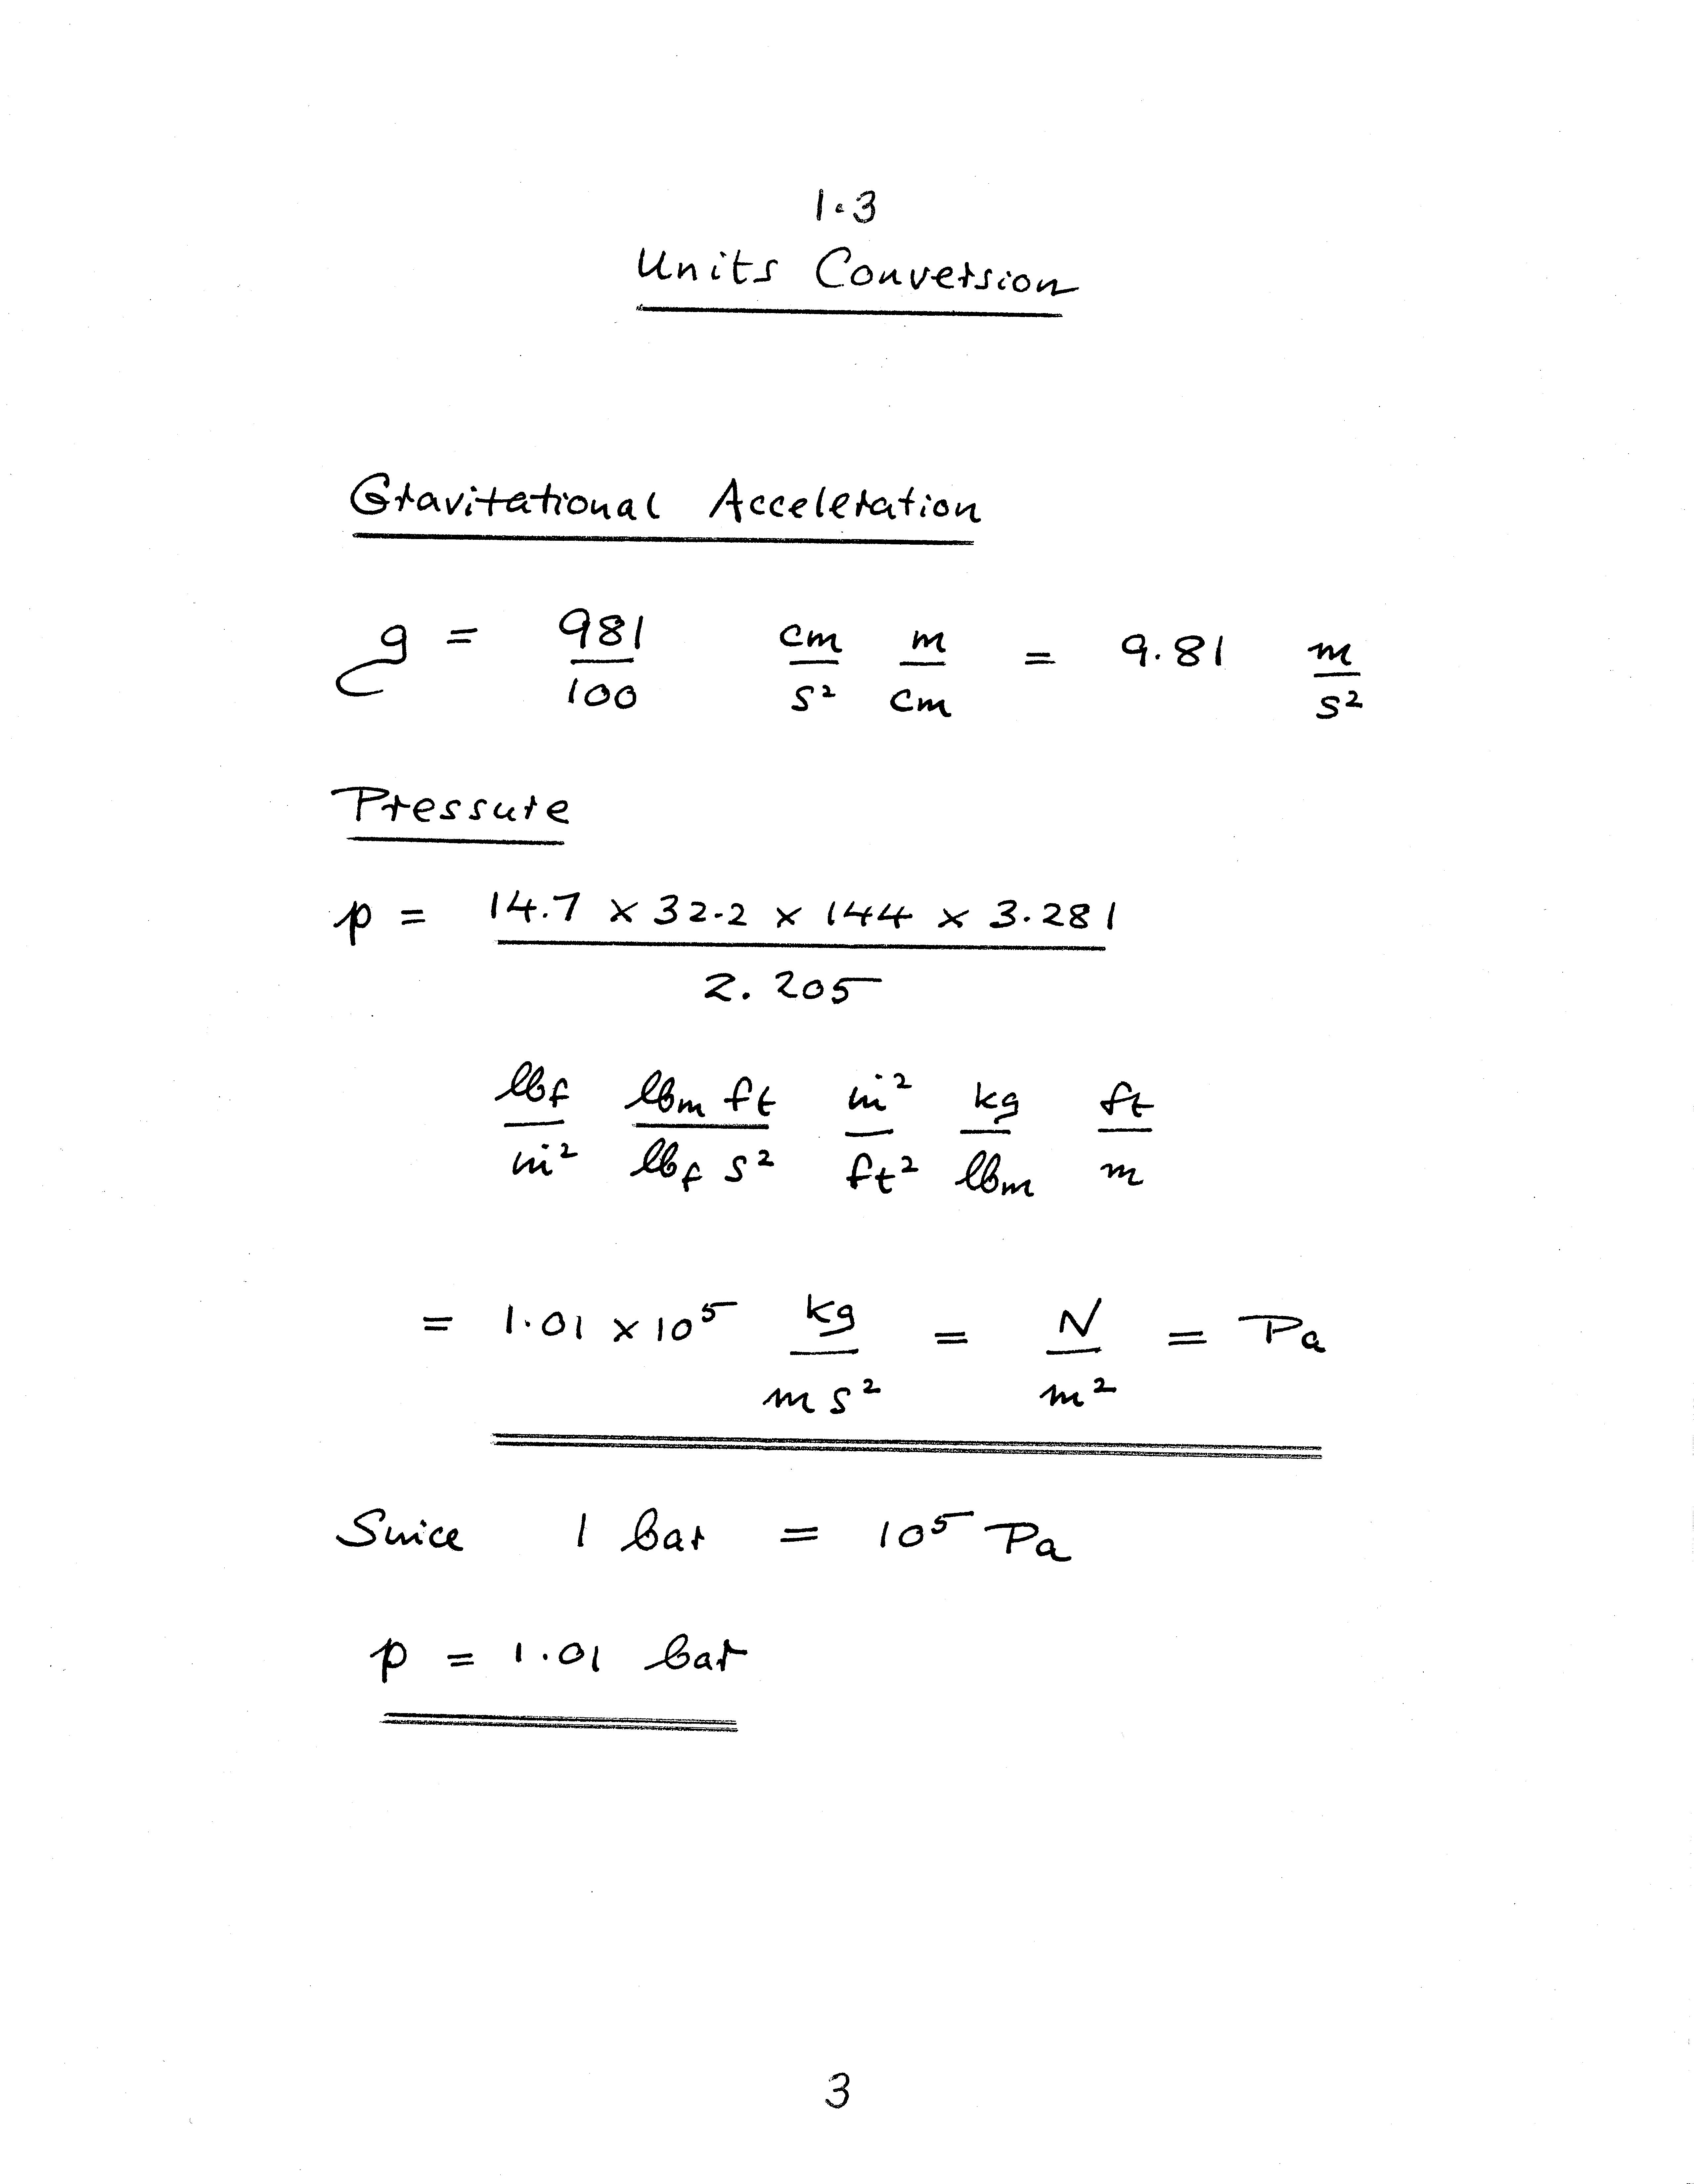 1.3
Units Conversion
Gravitational Acceleration
g = 981/100 cm/s² m/cm = 9.81 m/s²
Pressure
p = 14.7 × 32.2 × 144 × 3.281 / 2.205
lbf/in² lbm ft/lbf s² in²/ft² kg/lbm ft/m
= 1.01 × 10⁵ kg/m s² = N/m² = Pa
Since 1 bar = 10⁵ Pa
p = 1.01 bar
3